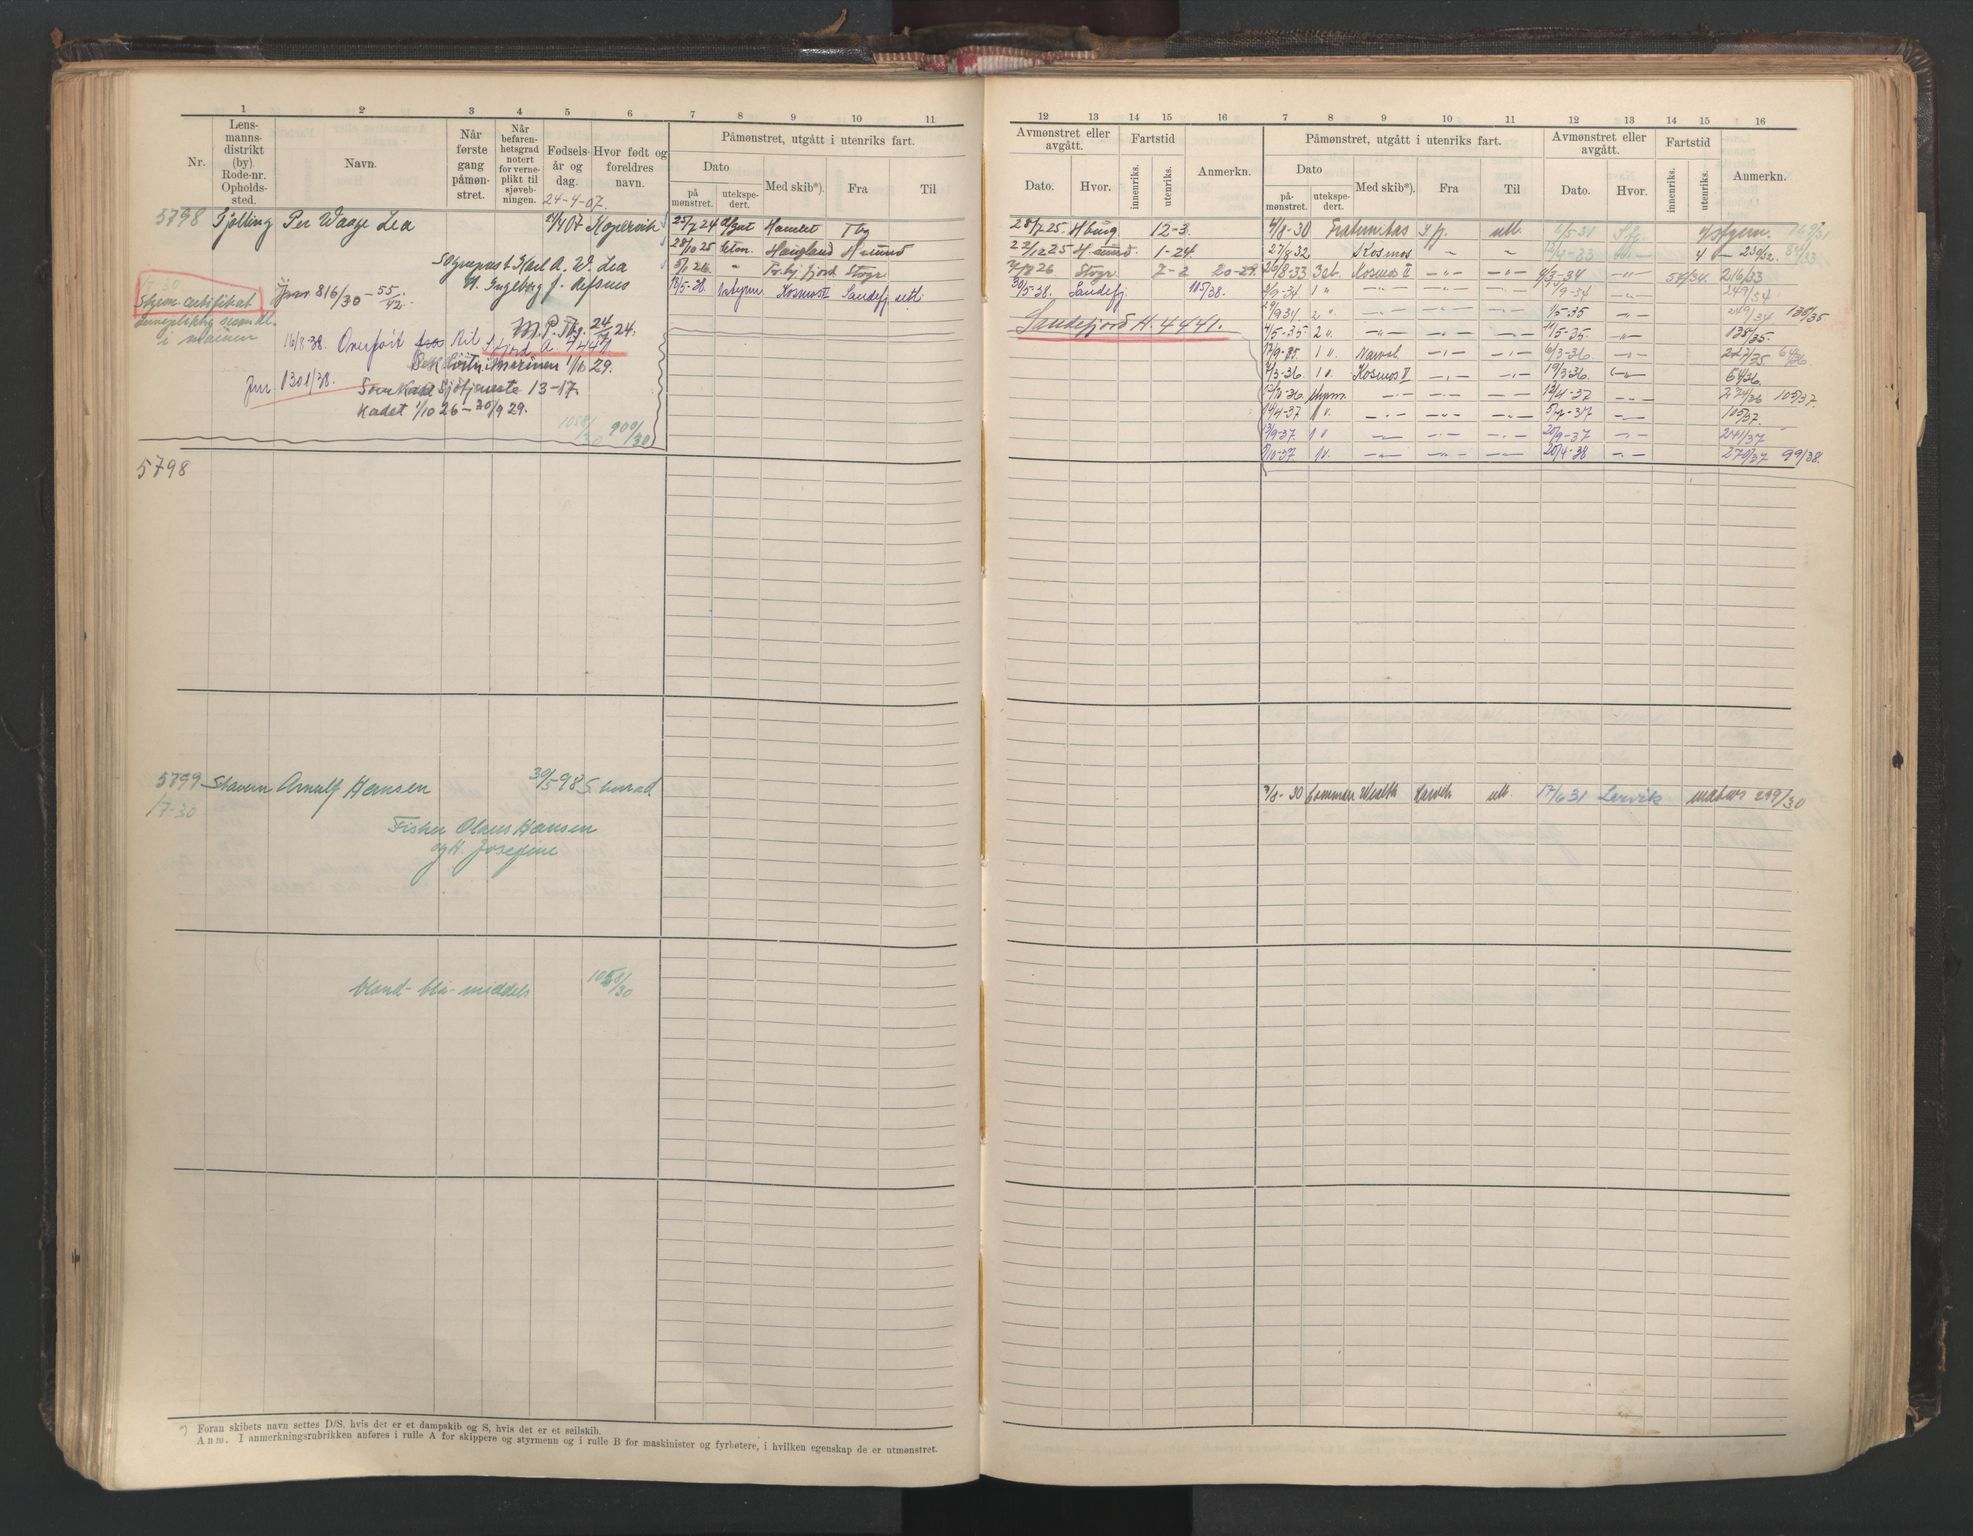 1 2 3 4 5 6 7 8 9 10 11
Nr.
Lens-
manns-
distrikt
(by)
Rode-nr.
Opholds-
sted.
Navn.
Når
første
gang
påmøn-
stret.
Når
befaren-
hetsgrad
notert
for verne-
plikt til
sjøveb-
ningen.
Fødsels-
år og
dag.
24-4-07.
Hvor født og
foreldres
navn.
Påmønstret, utgått i utenriks fart.
Dato
på
mønstret.
utekspe-
dert.
Med skib*).
Fra
Til
5798 Tjølling Per Waage Lea 24/4 07 Kopervik 25/7 24 Hamlet Tbg
28/10 25 Haugland H sund
Karl A. W. Lea 5/1 26 " Storgr.
H. Ingeborg J. Refsnes 18/5-38. Kosmos II Sandefj. utl.
7-30
Styrm. certifikat
Jour 816/30 - 55/42.
i marinen
M. P. Tbg. 24/24.
16/8-38. Overført til S.fjord A. 4441
i Marinen 1/10 29.
Jnr 1301/38. Sjøtjeneste 13-17.
Kadet 1/10 26 - 20/9 29.
1058/30 900/30
5798
5799 Stavern Arnulf Hansen 30/5-98
1/7-30
Fisker Olaus Hansen
og H. Josefine
blond - blå - middels 1058/30
*) Foran skibets navn settes D/S, hvis det er et dampskib og S, hvis det er et seilskib.
Anm. I anmerkningsrubrikken anføres i rulle A for skippere og styrmenn og i rulle B for maskinister og fyrbøtere, i hvilken egenskap de er utmønstret.
12 13 14 15 16 7 8 9 10 11 12 13 14 15 16
Avmønstret eller
avgått.
Dato.
Hvor.
Fartstid
innenriks.
utenriks.
Anmerkn.
Påmønstret, utgått i utenriks fart.
Dato
på-
mønstret.
utekspe-
dert.
Med skib*).
Fra
Til
Avmønstret eller
avgått.
Dato.
Hvor.
Fartstid
innenriks.
utenriks.
Anmerkn.
28/7 25. Hbürg 12-3. 4/8-30 Fraternitas S.fj. utl. 1/5-31 S.fj. 169/31
22/12 25 H.sund. 1-24. 27/8 32 Kosmos " " 239/32. 84/33
26 Storgr. 7-2 20-29. 29/8-33 3 st. Kosmos II -"- -"- 4/3-34 -"- 54/34. 216/33
30/5-38. Sandefj. 115/38. 9-34 1 " -"- -"- -"- /9-34 -"- 249/34
Sandefjord A. 4441.
29/9 34 2 " 1/5-35 -"- 249/34 135/35
4/5-35. 2 v. -"- -"- -"- 11/5-35. -"- 135/35.
17/9-35. 1 v. -"- -"- 6/3-36. -"- 227/35 64/36
/3-36. 1 v. Kosmos II -"- -"- 19/3 36. -"- 64/36.
12/10-36. styrm. -"- -"- -"- 12/4-37 -"- 274/36 105/37.
19/4-37 1 v. -"- -"- -"- -37 -"- 105/37.
13/9-37. 1 v -"- -"- -"- 20/9-37 -"- 241/37
/10-37. 1 v. -"- -"- -"- 20/4-38 -"- 270/37 99/38.
/8-30 Common Wealth Larvik utl. 17/6 31 Larvik matros 299/30